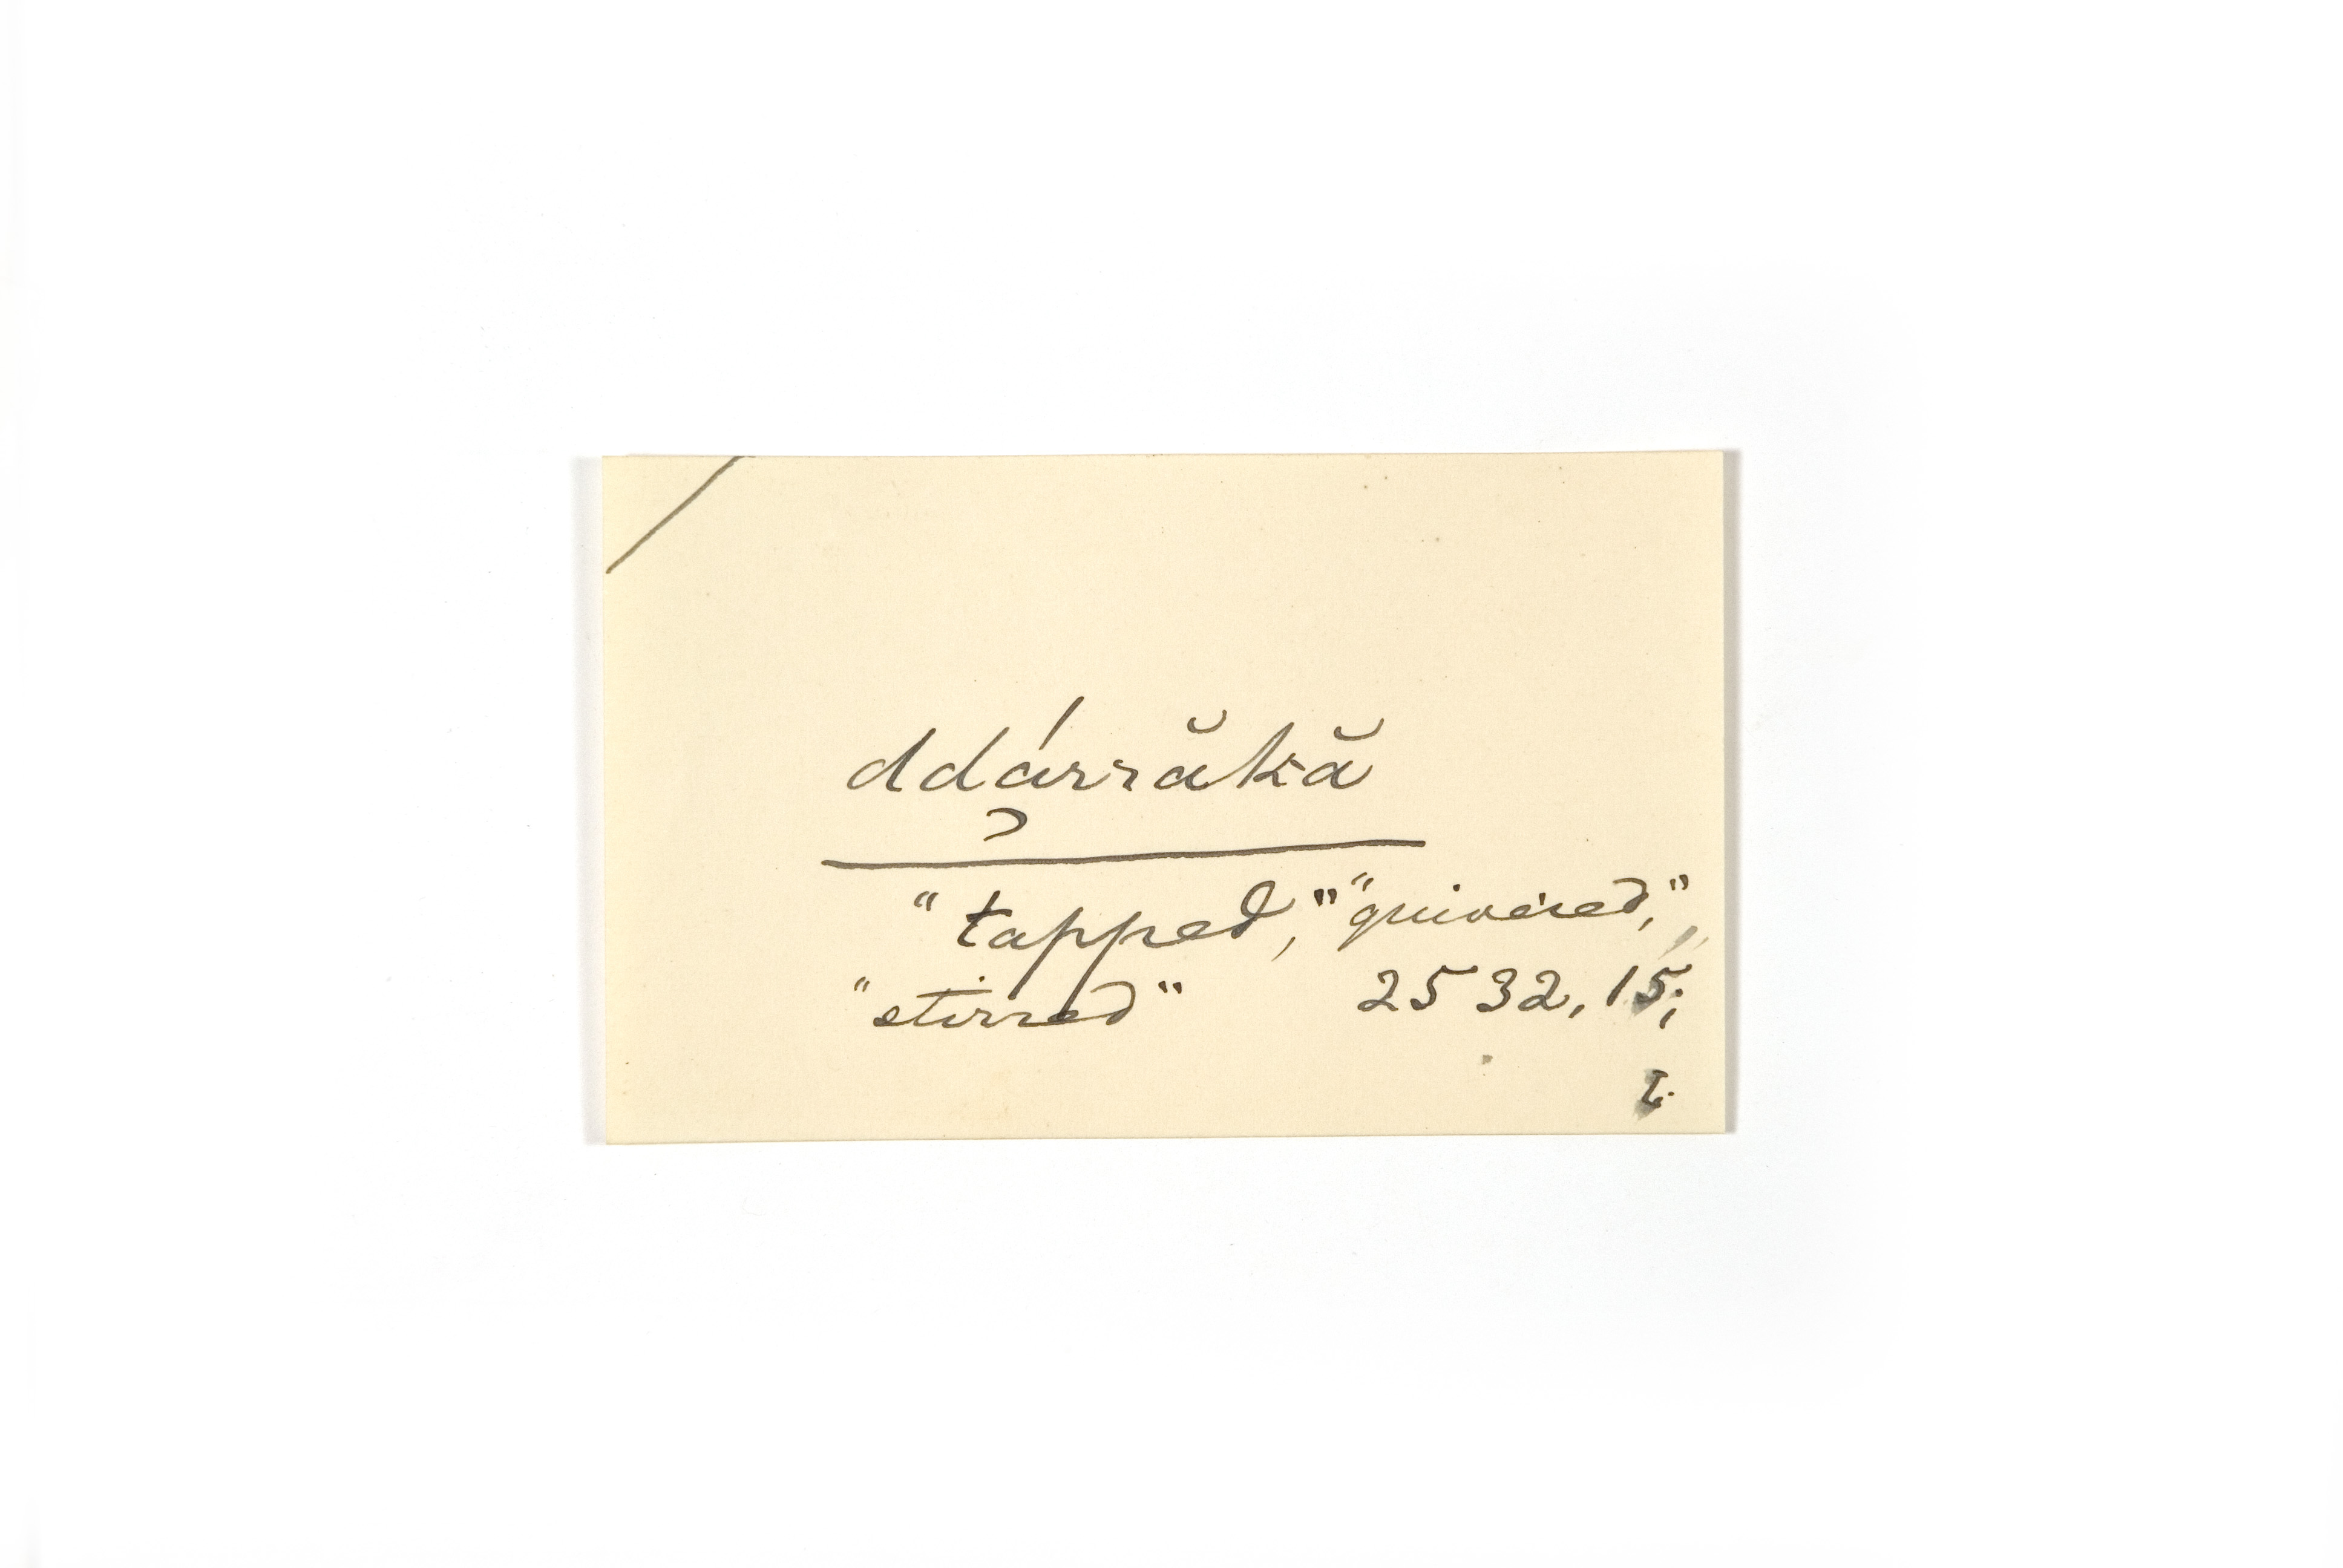 ddá̦rrăkă
"tapped," "quivered,"
"stirred" 2532, 15;